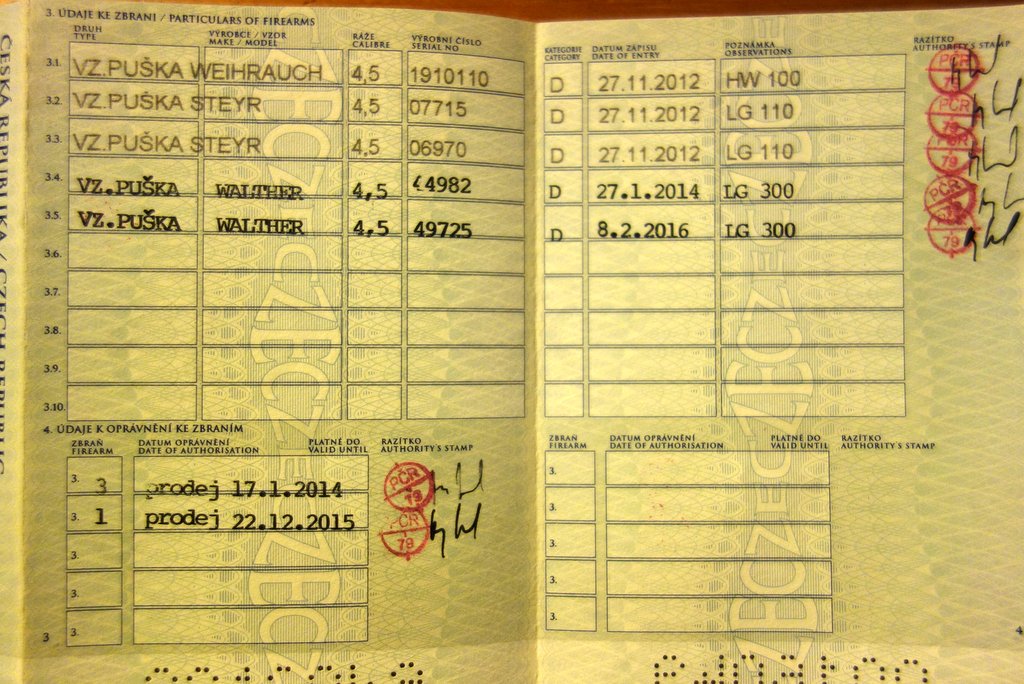 3. ÚDAJE KE ZBRANI / PARTICULARS OF FIREARMS
DRUH
TYPE
VÝROBCE / VZOR
MAKE / MODEL
RÁŽE
CALIBRE
VÝROBNÍ ČÍSLO
SERIAL NO
3.1. VZ.PUŠKA WEIHRAUCH 4,5 1910110
3.2. VZ.PUŠKA STEYR 4,5 07715
3.3. VZ.PUŠKA STEYR 4,5 06970
3.4. VZ.PUŠKA WALTHER 4,5 44982
3.5. VZ.PUŠKA WALTHER 4,5 49725
3.6.
3.7.
3.8.
3.9.
3.10.
4. ÚDAJE K OPRÁVNĚNÍ KE ZBRANÍM
ZBRAŇ
FIREARM
DATUM OPRÁVNĚNÍ
DATE OF AUTHORISATION
PLATNÉ DO
VALID UNTIL
RAZÍTKO
AUTHORITY'S STAMP
3. 3 prodej 17.1.2014 PČR 79
3. 1 prodej 22.12.2015 PČR 79
3.
3.
3.
3
KATEGORIE
CATEGORY
DATUM ZÁPISU
DATE OF ENTRY
POZNÁMKA
OBSERVATIONS
RAZÍTKO
AUTHORITY'S STAMP
D 27.11.2012 HW 100 PČR 79
D 27.11.2012 LG 110 PČR 79
D 27.11.2012 LG 110 PČR 79
D 27.1.2014 LG 300 PČR
D 8.2.2016 LG 300 79
ZBRAŇ
FIREARM
DATUM OPRÁVNĚNÍ
DATE OF AUTHORISATION
PLATNÉ DO
VALID UNTIL
RAZÍTKO
AUTHORITY'S STAMP
3.
3.
3.
3.
3.
4
ČESKÁ REPUBLIKA / CZECH REPUBLIC